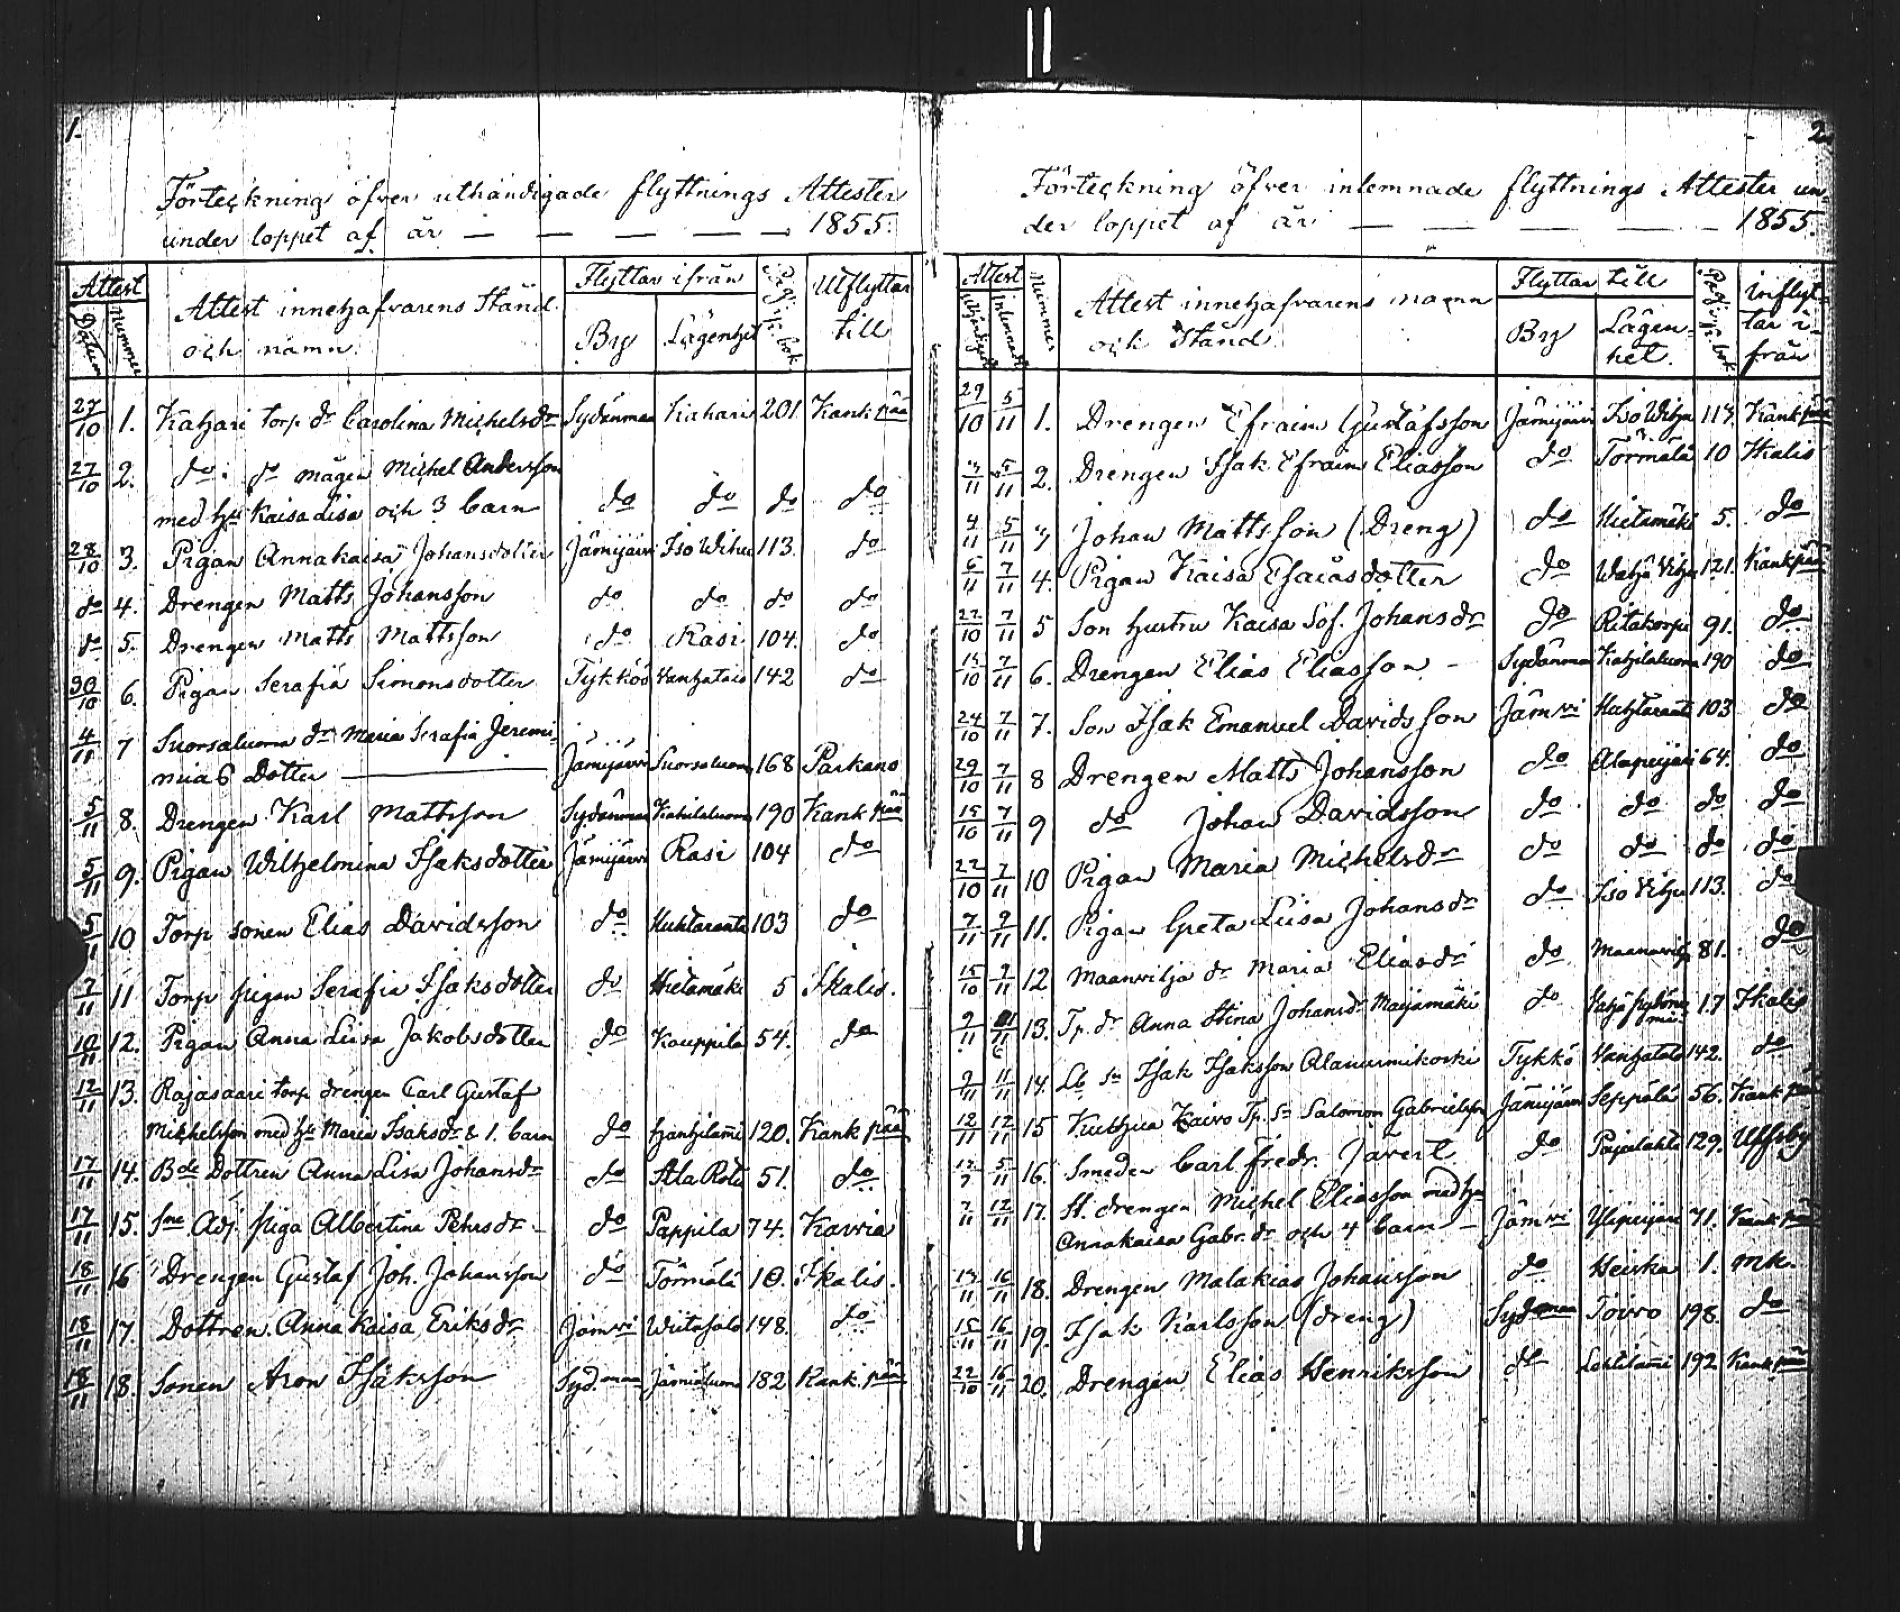 1.
Förteckning öfver uthändigade flyttnings Attester
under loppet af år — — — — — 1855.
Attest
Datum
Nummer
Attest innehafvarens Stånd
och namn.
Flyttar ifrån
By
Lägenhet
Pag: i k: bok
Utflyttar
till
27/10 1. Kahari torp. dr Carolina Michelsdr Sydänmaa Kahari 201. Kankpää
27/10 2. do do mågen Michel Andersson
med hu Kaisa Lisa och 3 barn do do do do
28/10 3. Pigan Annakaisa Johansdotter Jämijärvi Iso Wihu 113. do
do 4. Drengen Matts Johansson do do do do
do 5. Drengen Matts Mattsson do Rasi 104. do
30/10 6. Pigan Serafia Simonsdotter Tykköö Vanhatalo 142 do
4/11 7 Suorsaluoma dr Maria Serafia Jeremi-
mia6 Dotter Jämijärvi Suorsaluoma 168 Parkano
5/11 8. Drengen Karl Mattsson Sydänmaa Kahilaluoma 190 Kankpää
5/11 9. Pigan Wilhelmina Isaksdotter Jämijärvi Rasi 104 do
5/11 10 Torp sonen Elias Davidsson do Huhtaranta 103 do
7/11 11 Torp pigan Serafia Isaksdotter do Hietamäki 5 Ikalis.
10/11 12. Pigan Anna Liisa Jakobsdotter do Kauppila 54. do
12/11 13. Rajasaari torp. drengen Carl Gustaf
Mikhelsson med hu Maria Isaksdr & 1. barn do Hanhilami 120. Kankpää
17/11 14. Bde Dottren Anna Lisa Johansdr do Ala Röti 51. do
17/11 15. Sne Adj. piga Albertina Pehrsdr do Pappila 74. Karvia
18/11 16 Drengen Gustaf Joh. Johansson do Törmälä 10. Ikalis.
18/11 17. Dottren Anna Kaisa Eriksdr Jämvi Wiitasalo 148. do
18/11 18. Sonen Aron Isaksson Syd.maa Jämiäluoma 182 Kank.pää
2
Förteckning öfver inlemnade flyttnings Attester un-
der loppet af år — — — — — 1855.
Attest
Uthändigadt
Inlemnadt
Nummer
Attest innehafvarens namn
och Stånd.
Flyttar till
By
Lägen-
het.
Pag: i k: bok
Inflyt-
tar i-
från
29/10 5/11 1. Drengen Efraim Gustafsson Jämijärvi Iso Wihu 113. Kankpää
5/11 2. Drengen Isak Efraim Eliasson do Törmälä 10 Ikalis
4/11 5/11 3 Johan Mattsson (Dreng) do Hietamäki 5. do
6/11 7/11 4. Pigan Kaisa Esaiasdotter do Wähä Vihu 121. Kankpää
22/10 7/11 5 Son hustru Kaisa Sof. Johansdr do Ritakorpi 91. do
15/10 7/11 6. Drengen Elias Eliasson Sydänmaa Kahilaluoma 190 do
24/10 7/11 7. Son Isak Emanuel Davidsson Jämvi Huhtaranta 103 do
29/10 7/11 8 Drengen Matts Johansson do Alapeijari 64. do
15/10 7/11 9 do Johan Davidsson do do do do
22/10 7/11 10 Pigan Maria Michelsdr do do do do
7/11 9/11 11. Pigan Greta Liisa Johansdr do Iso Vihu 113. do
15/10 9/11 12 Maanvilja dr Maria Eliasdr do Maanvilja 81. do
9/11 11/11 13. Tp. dr Anna Stina Johansdr Marjamäki do 17 Ikalis
9/11 11/11 14. Lb. sn Isak Isaksson Alanurmikoski Tykkö Vanhatalo 142. do
12/11 12/11 15 Kuthua Kaivo Tp. Sn Salomon Gabrielsson Jämijärvi Seppälä 56. Kankpää
5/11 16. Smeden Carl Fredr. Javert do Pajalahti 129. Ulfsby
7/11 12/11 17. St. drengen Michel Eliasson med hu
Annakaisa Gabr. dr och 4 barn — Jämvi Ylipeijari 71. Kankpää
16/11 18. Drengen Malakias Johansson do Heiska 1. mk.
15/11 16/11 19. Isak Karlsson (dreng) Sydmaa Toivo 198. do
22/10 16/11 20. Drengen Elias Henriksson do Lehtilami 192 Kankpää